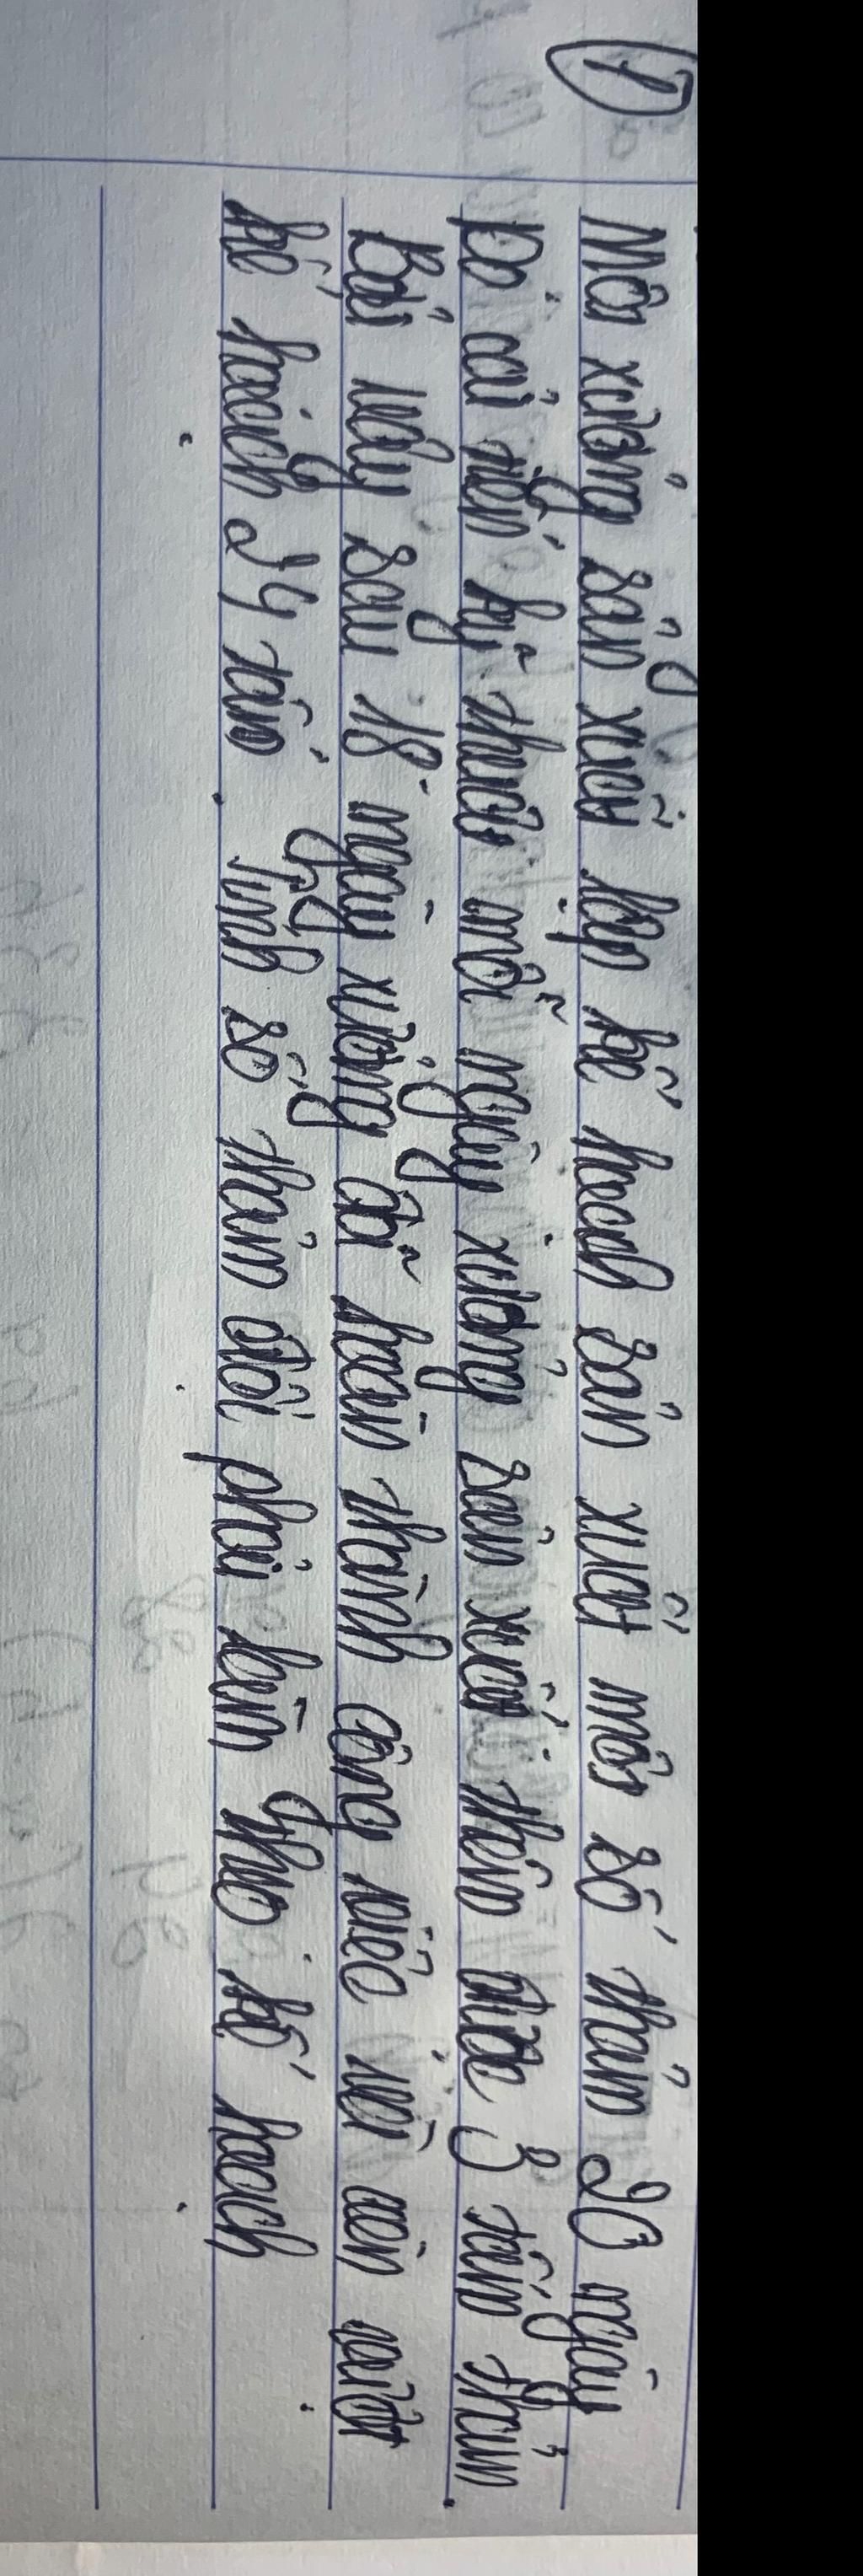 ①
Một xưởng sản xuất lập kế hoạch sản xuất một số thảm 20 ngày
Do cải tiến kỹ thuật mỗi ngày xưởng sản xuất thêm được 3 tấm thảm.
Bởi vậy sau 18 ngày xưởng đã hoàn thành công việc mà còn vượt
kế hoạch 24 tấm. Tính số thảm đội phải làm theo kế hoạch